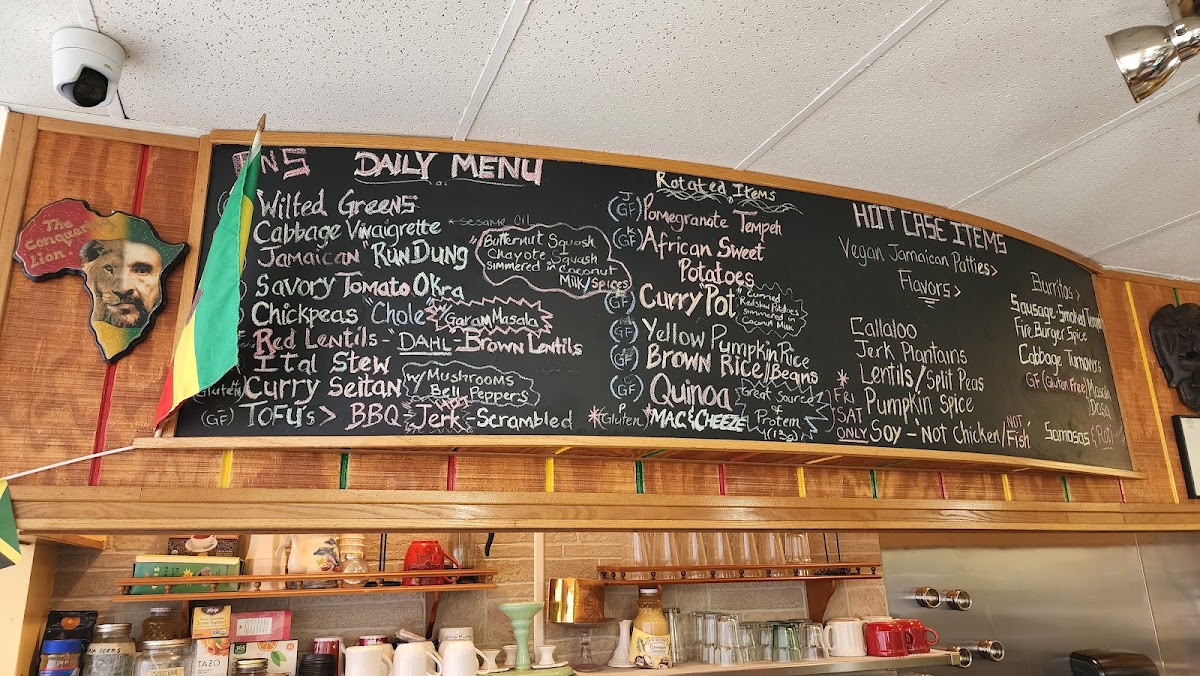 The
Conquering
Lion!
DAILY MENU
Wilted Greens
Cabbage Vinaigrette *Sesame Oil
Jamaican "Run Dung"
Butternut Squash
Chayote Squash
Simmered in Coconut
Milk/Spices
Savory Tomato Okra
Chickpeas "Chole" "Garam Masala"
Red Lentils - "DAHL" - Brown Lentils
Ital Stew
(Gluten) Curry Seitan
w/ Mushrooms
Bell Peppers
(GF) TOFU's > BBQ Jerk - Scrambled
Rotated Items
(GF) Pomegranate Tempeh
(GF) African Sweet
Potatoes
(GF) Curry Pot
Curried
Redskin Potatoes
simmered in
Coconut Milk
(GF) Yellow Pumpkin Rice
(GF) Brown Rice/Beans
(GF) Quinoa
Great Source
of
Protein
(13g)
*(Gluten) *MAC & CHEEZE
HOT CASE ITEMS
Vegan Jamaican Patties>
Flavors>
Callaloo
Jerk Plantains
Lentils/Split Peas
Pumpkin Spice
Soy - "Not Chicken/NOT Fish"
* FRI
SAT
ONLY
Burritos>
Sausage-Smoked
Fire Burger Spice
Cabbage Turnovers
GF (Gluten Free) Masala
Dosa
Samosas
TAZO